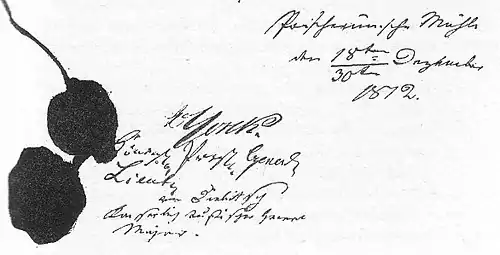 Poscherunsche Mühle
den 18ten/30ten Dezember
1812.
v Yorck.
Königl. Preuß. General
Lieut.
von Diebitsch
Kaiserlich russischer General
Major.